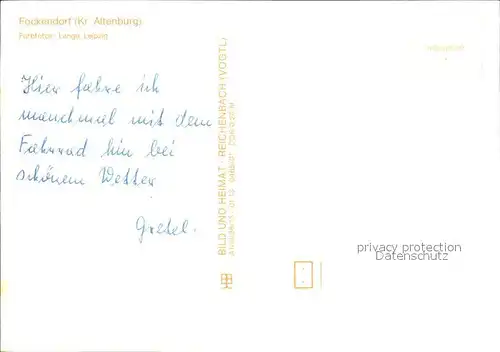 Fockendorf (Kr. Altenburg)
Farbfotos: Lange, Leipzig
Hier fahre ich
manchmal mit dem
Fahrrad hin bei
schönem Wetter
Gretel.
BILD UND HEIMAT REICHENBACH (VOGTL)
privacy protection
Datenschutz